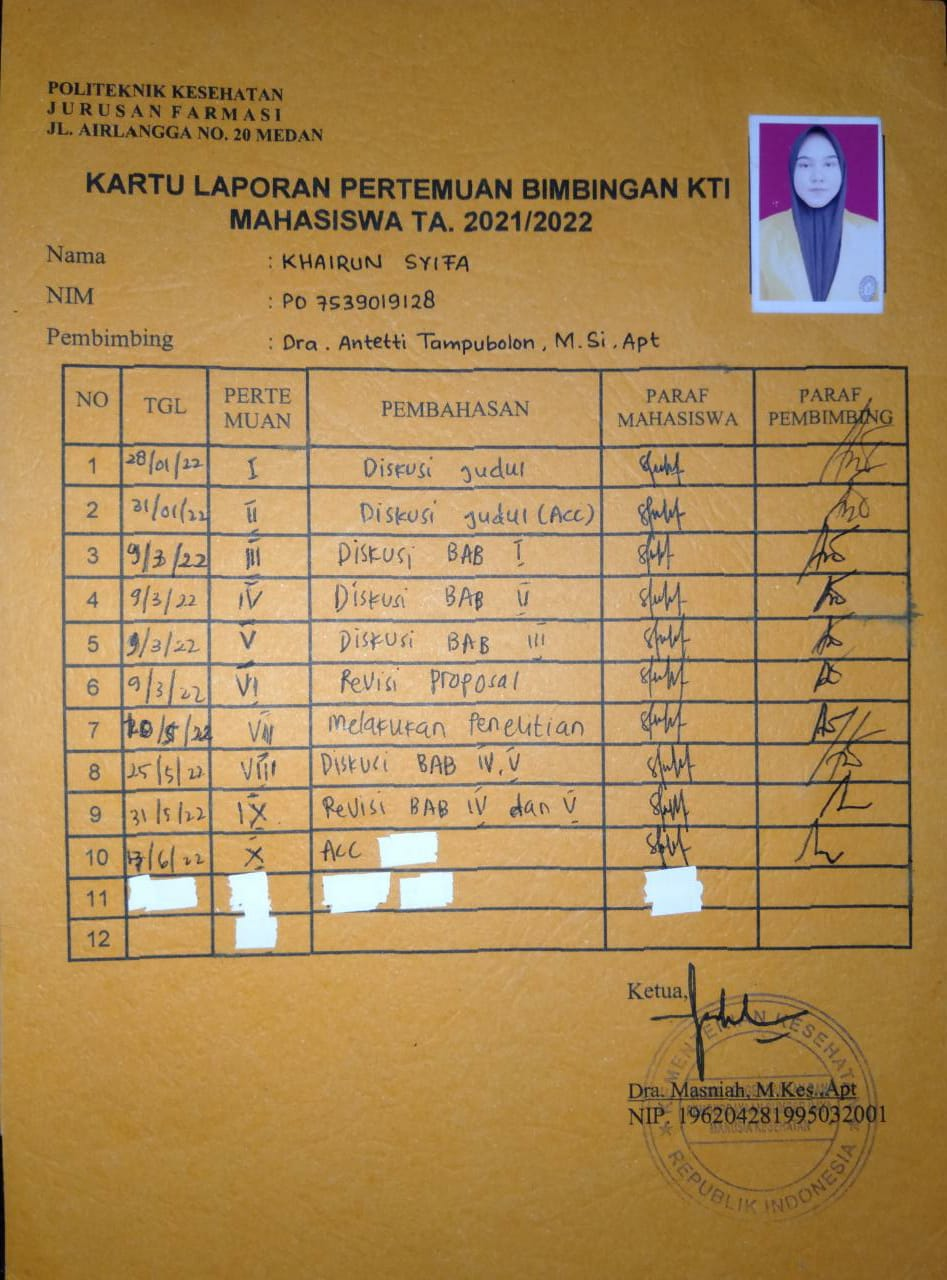 POLITEKNIK KESEHATAN
JURUSAN FARMASI
JL. AIRLANGGA NO. 20 MEDAN
KARTU LAPORAN PERTEMUAN BIMBINGAN KTI
MAHASISWA TA. 2021/2022
Nama : KHAIRUN SYIFA
NIM : PO 7539019128
Pembimbing : Dra. Antetti Tampubolon, M.Si, Apt
NO TGL PERTE MUAN PEMBAHASAN PARAF MAHASISWA PARAF PEMBIMBING
1 28/01/22 I Diskusi judul
2 31/01/22 II Diskusi judul (Acc)
3 9/3/22 III Diskusi BAB I
4 9/3/22 IV Diskusi BAB II
5 9/3/22 V Diskusi BAB III
6 9/3/22 VI Revisi Proposal
7 VII Melakukan Penelitian
8 25/5/22 VIII Diskusi BAB IV, V
9 31/5/22 IX Revisi BAB IV dan V
10 X Acc
11
12
Ketua,
Dra. Masniah, M.Kes.,Apt
NIP. 196204281995032001
KEMENTERIAN KESEHATAN
REPUBLIK INDONESIA